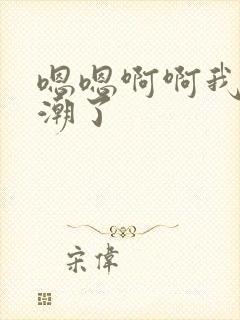 嗯嗯啊啊我
潮了
宋偉